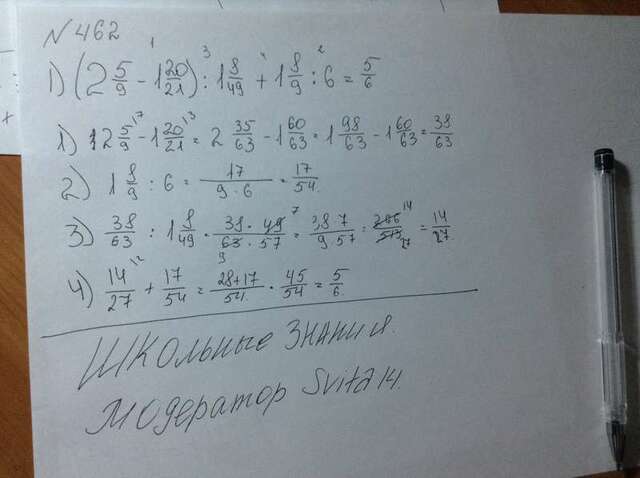 N 462
1) (2 5/9 - 1 20/21) : 1 8/49 + 1 8/9 : 6 = 5/6
1) 2 5/9 - 1 20/21 = 2 35/63 - 1 60/63 = 1 98/63 - 1 60/63 = 38/63
2) 1 8/9 : 6 = 17/9·6 = 17/54
3) 38/63 : 1 8/49 · 38·49/63·57 = 38 7/9 57 = 266/513 = 14/27
4) 14/27 + 17/54 = 28+17/54 · 45/54 = 5/6
ШКОЛЬНЫЕ ЗНАНИЯ.
Модератор Svita14.